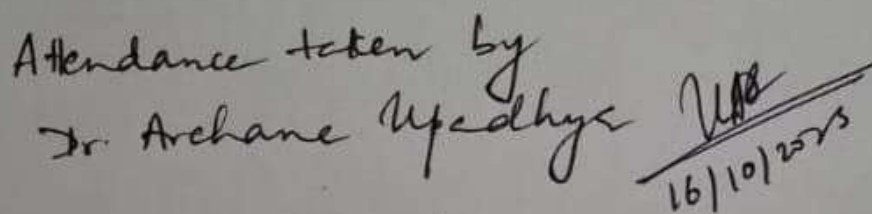 Attendance taken by
Dr. Archana Upadhya
16/10/2023